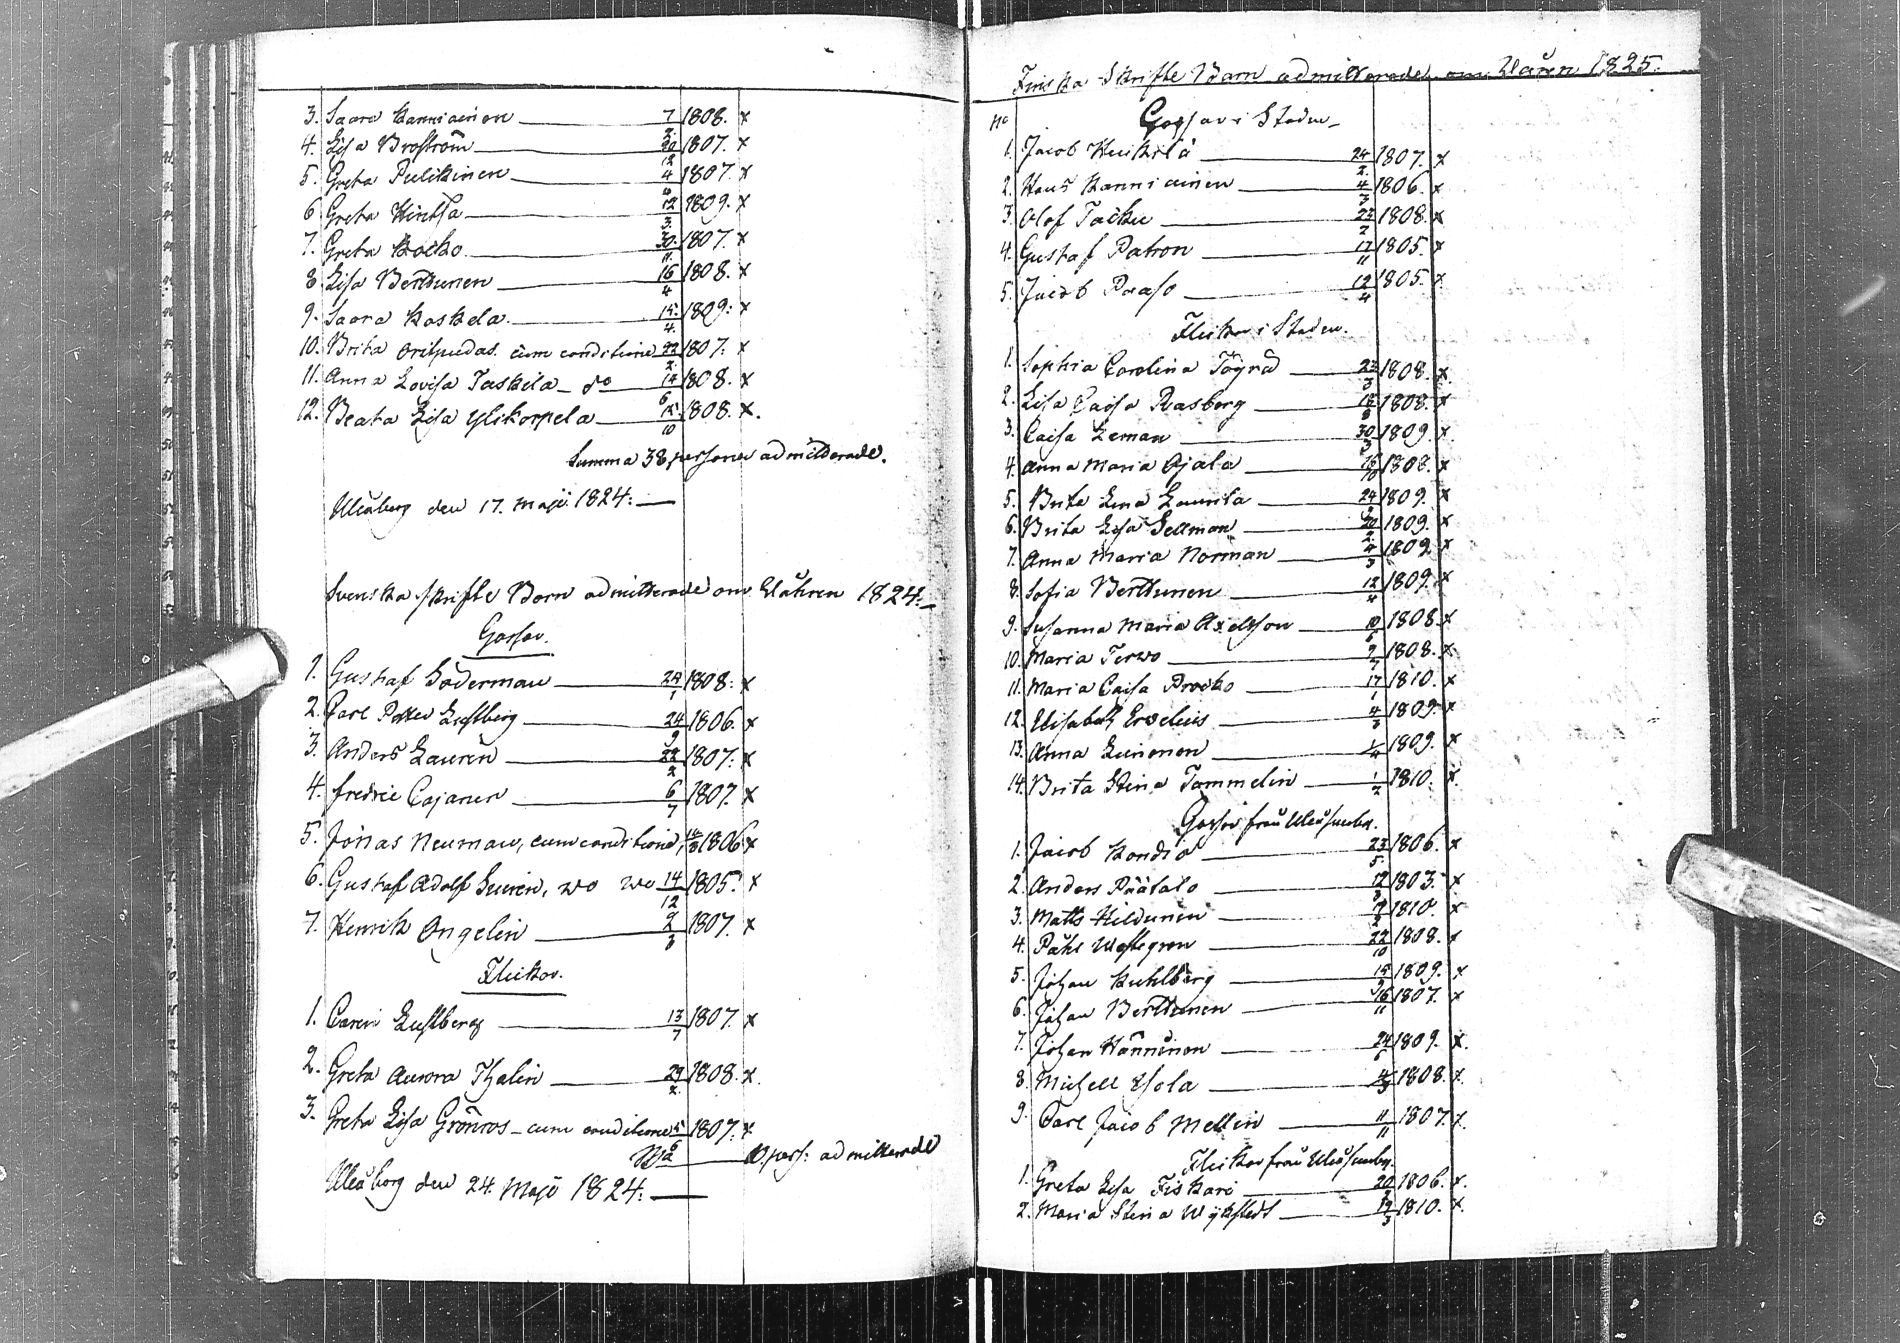 3. Saara Kanniainen 7/2 1808. x
4. Lisa Broström 20/12 1807. x
5. Greta Pulkkinen 4/4 1807. x
6 Greta Hintsa 12/3 1809. x
7. Greta Kocko 30/11 1807. x
8 Lisa Berttunen 16/4 1808. x
9. Saara Koskela 15/4 1809. x
10. Brita cum conditione 22/2 1807. x
11. Anna Lovisa Taskila do 14/6 1808. x
12. Beata Lisa Ylikorpela 15/10 1808. x.
Summa 38 personer admitterade.
Uleåborg den 17. Maji 1824.
Svenska skrifte Barn admitterade om Wåhren 1824.
Gossar.
1. Gustaf Söderman 24/1 1808. x
2. Carl Petter Luftberg 24/9 1806. x
3. Anders Lauren 22/2 1807. x
4. Fredric Cajanen 6/7 1807. x
5. Jonas Neuman, cum conditione, 1806 x
6. Gustaf Adolf 14/12 1805. x
7. Henrik Ongelin 2/3 1807. x
Flickor.
1. Caren Luftberg 13/7 1807. x
2. Greta Aurora Thalin 29/2 1808. x.
3. Greta Lisa Grönros cum conditione 5/6 1807. x
pers: admitterade
Uleåborg den 24. Maji 1824.
Finska Skrifte Barn admitterade om Våren 1825.
No Gossar i Staden
1. Jacob Heikilä 24/2 1807. x
2. Hans Kanniainen 4/3 1806. x
3. Olof Tacku 22/2 1808. x
4. Gustaf Patron 17/11 1805. x
5. Jacob Paaso 12/4 1805. x
Flickor i Staden.
1. Sophia Carolina 23/3 1808. x
2. Lisa Caisa Rasberg 1808. x
3. Caisa Leman 30/3 1809. x
4. Anna Maria Ojala 16/10 1808. x
5. Brita Lena Laurila 1809. x
6. Brita Lisa Sellman 20/2 1809. x
7. Anna Maria Norman 4/3 1809 x
8. Sofia Berttunen 12/4 1809. x
9. Susanna Maria Axelsson 10/6 1808. x
10. Maria Terwo 9/7 1808. x
11. Maria Caisa Procko 17/1 1810. x
12. Elisabeth Ervelius 4/3 1809. x
13. Anna Luinonen 1/4 1809. x
14. Brita Stina Tammelin 1/2 1810. x
Gossar från Uleåsuubu.
1. Jacob Kondio 23/5 1806. x
2. Anders Päätalo 1803. x
3. Matts Hildunen 1810. x
4. Påhl Westegren 22/10 1808. x
5. Johan Kuhlberg 1809. x
6. Johan Berttunen 16/11 1807. x
7. Johan Hänninen 1809. x.
8. Michell Ysola 4/3 1808. x.
9. Carl Jacob Mellin 11/11 1807. x.
Flickor från Uleåsuubu.
1. Greta Lisa Fiskari 1806. x.
2. Maria Stina Wykstedt 1810. x.